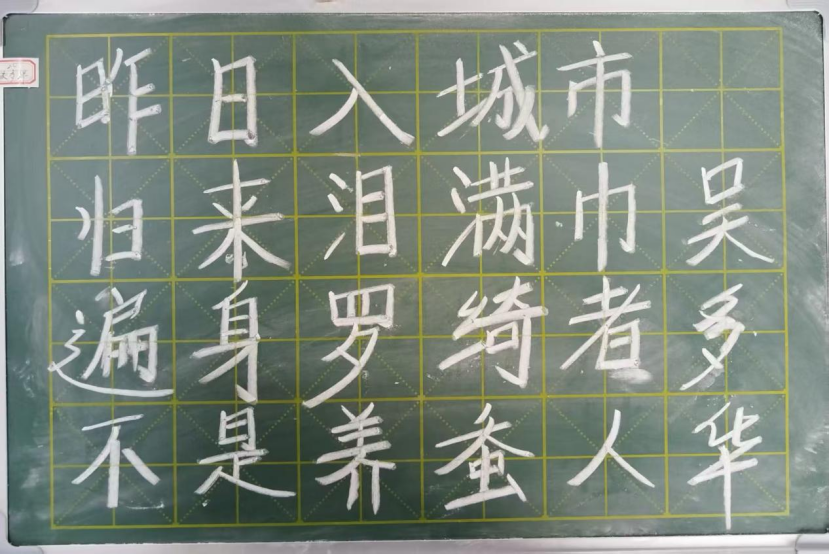 昨日入城市
归来泪满巾
遍身罗绮者
不是养蚕人
吴多华